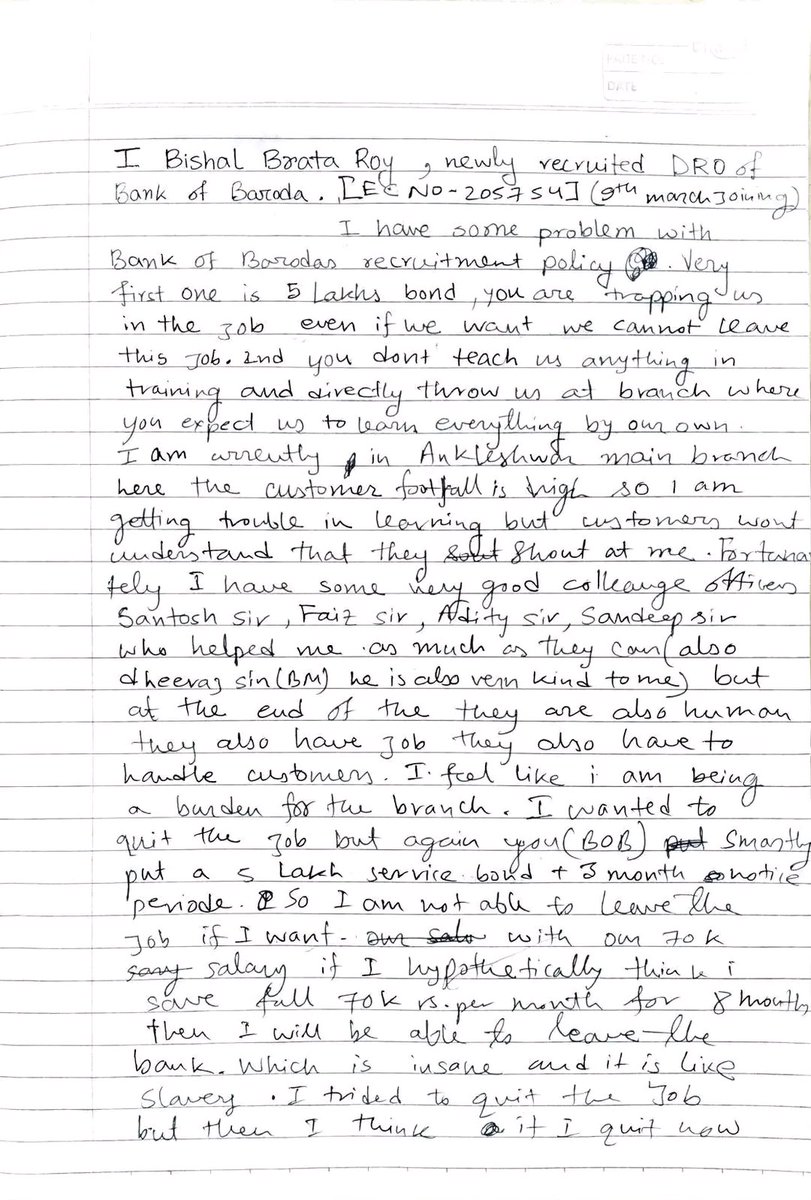 PAGE NO.
DATE
I Bishal Brata Roy, newly recruited DRO of
Bank of Baroda. [EC NO-205754] (9th march Joining)
I have some problem with
Bank of Barodas recruitment policy. Very
first one is 5 Lakhs bond, you are trapping us
in the job even if we want we cannot leave
this job. 2nd you dont teach us anything in
training and directly throw us at branch where
you expect us to learn everything by our own.
I am currently in Ankleshwar main branch
here the customer footfall is high so I am
getting trouble in learning but customers wont
understand that they shout at me. Fortuna
tely I have some very good colleauge officers
Santosh sir, Faiz sir, Adity sir, Sandeep sir
who helped me as much as they can (also
dheeraj sir (BM) he is also very kind to me) but
at the end of the they are also human
they also have job they also have to
handle customers. I feel like i am being
a burden for the branch. I wanted to
quit the job but again you (BOB) put smartly
put a 5 Lakh service bond + 3 month notice
periode. So I am not able to leave the
job if I want. our with our 70k
salary if I hypothetically think i
save full 70k rs. per month for 8 month
then I will be able to leave the
bank. Which is insane and it is like
slavery. I trided to quit the Job
but then I think if I quit now